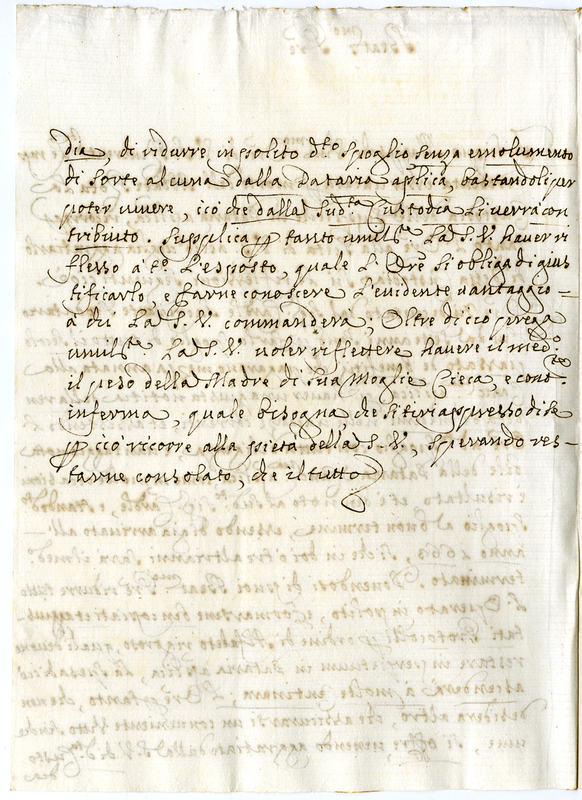 dia, di ridurre in polito d.to Spoglio senza emolumento
di sorte alcuna dalla Dataria ap.lica, bastandoli per
poter vivere, ciò che dalla sud.ta Custodia li verrà con
tribuito. Supplica p tanto umil.te La S. V. haver ri
flesso à t.o L'esposto, quale L' Ore si obliga di gius
tificarlo, e farne conoscere L'evidente vantaggio –
à chi La S. V. commanderà; Oltre di ciò prega
umil.te La S. V. voler riflettere havere il med.o
il peso della Madre di Sua Moglie Cieca, e
inferma, quale bisogna che si tiri appresso di se
p ciò ricorre alla pietà della S. V., sperando res–
tarne consolato, che il tutto